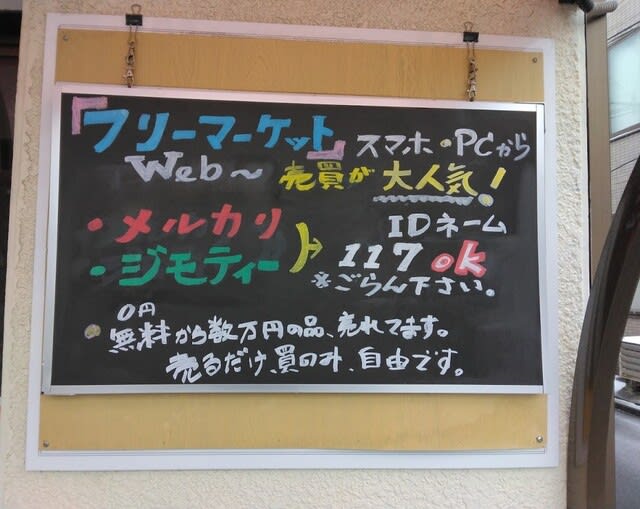 『フリーマーケット』スマホ・PCから
Web～ 売買が大人気!
・メルカリ IDネーム
・ジモティー 117 ok
※ごらん下さい。
0円
無料から数万円の品、売れてます。
売るだけ、買のみ、自由です。